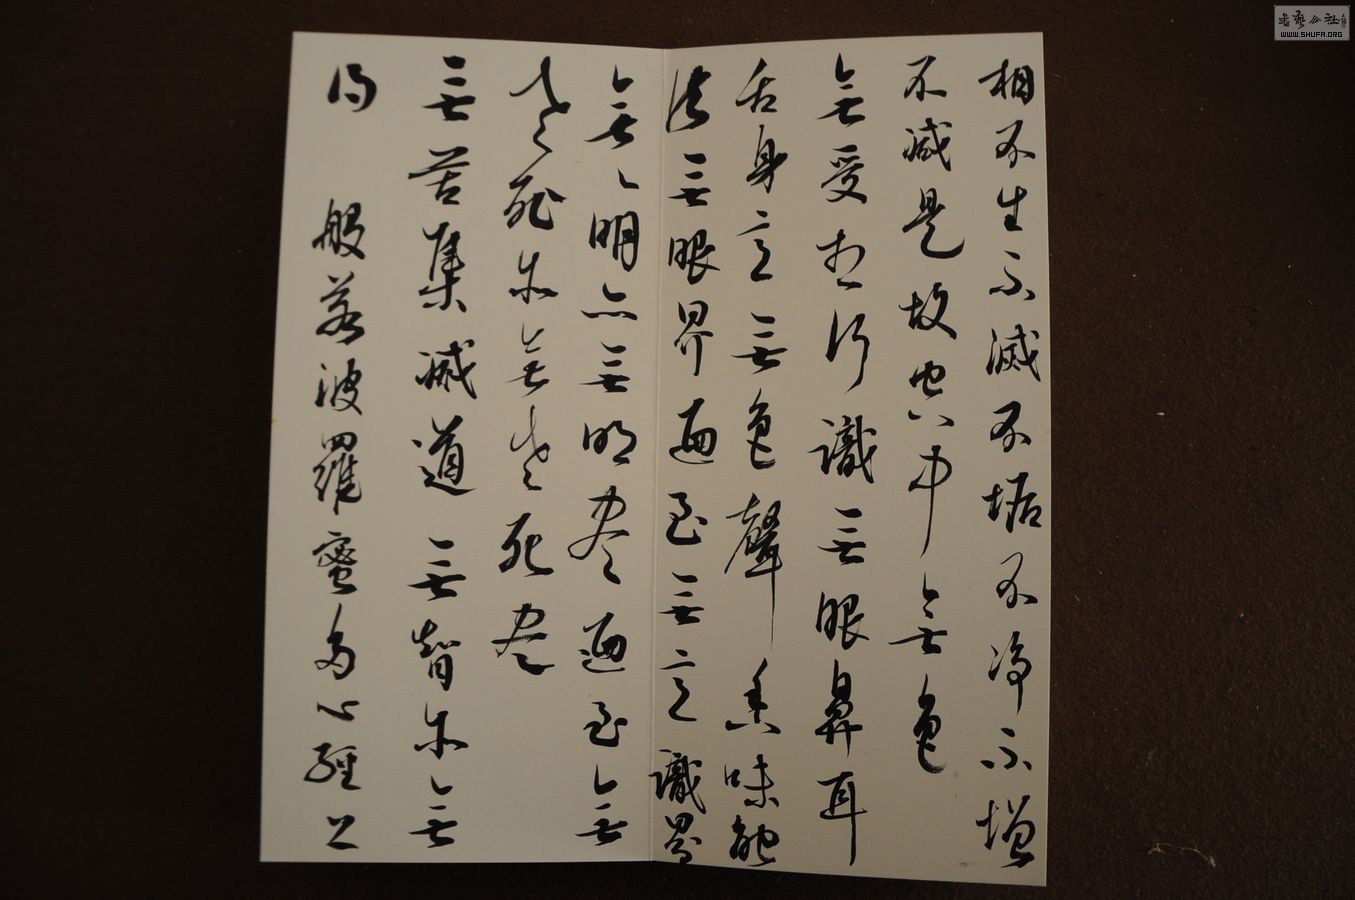 相不生不滅不垢不净不增
不減是故空中無色
無受想行識無眼鼻耳
舌身意無色聲香味觸
法無眼界迺至無意識界
無無明亦無明尽迺至無
老死亦無老死尽
無苦集滅道無智亦無
得 般若波羅蜜多心經上
書藝公社
WWW.SHUFA.ORG